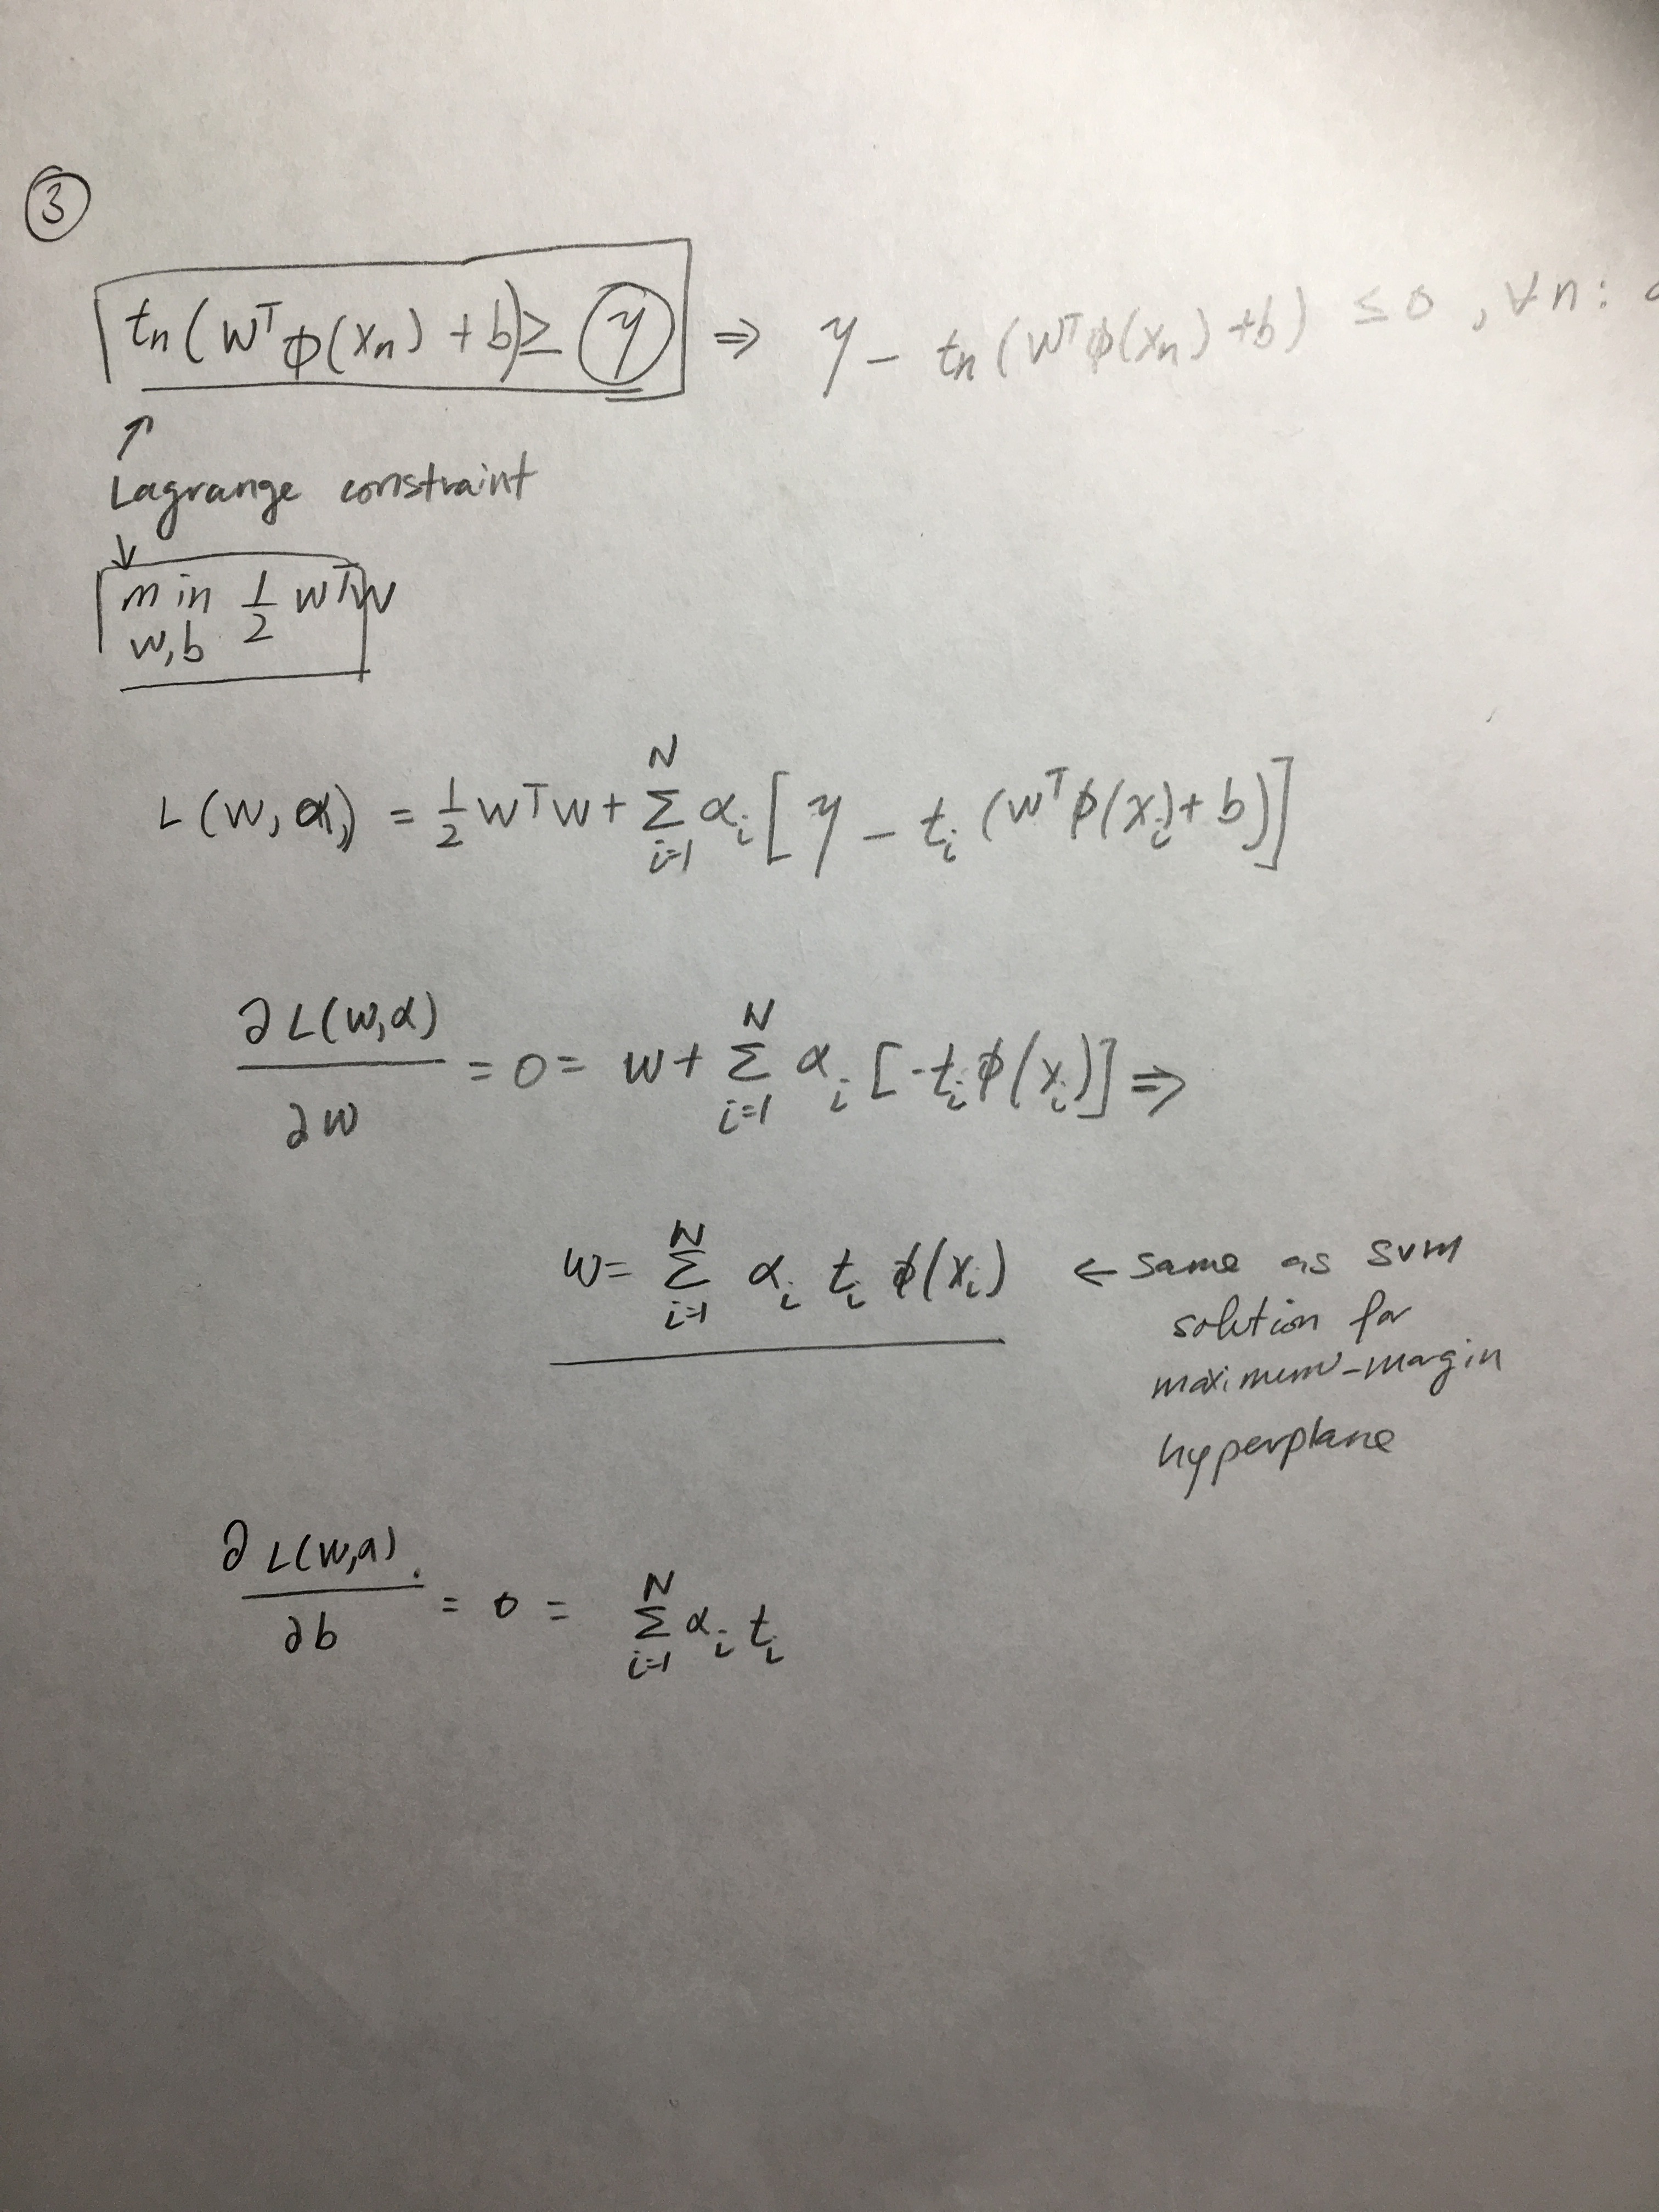 ③
tn(wᵀφ(xn) + b) ≥ γ ⇒ γ − tn(wᵀφ(xn) + b) ≤ 0, ∀n:
↑
Lagrange constraint
↓
min 1/2 wᵀw
w,b
L(w, α,) = 1/2 wᵀw + Σ_{i=1}^{N} αᵢ [γ − tᵢ (wᵀφ(xᵢ) + b)]
∂L(w,α)/∂w = 0 = w + Σ_{i=1}^{N} αᵢ [-tᵢφ(xᵢ)] ⇒
w = Σ_{i=1}^{N} αᵢ tᵢ φ(xᵢ) ← same as svm
solution for
maximum-margin
hyperplane
∂L(w,a)/∂b = 0 = Σ_{i=1}^{N} αᵢ tᵢ